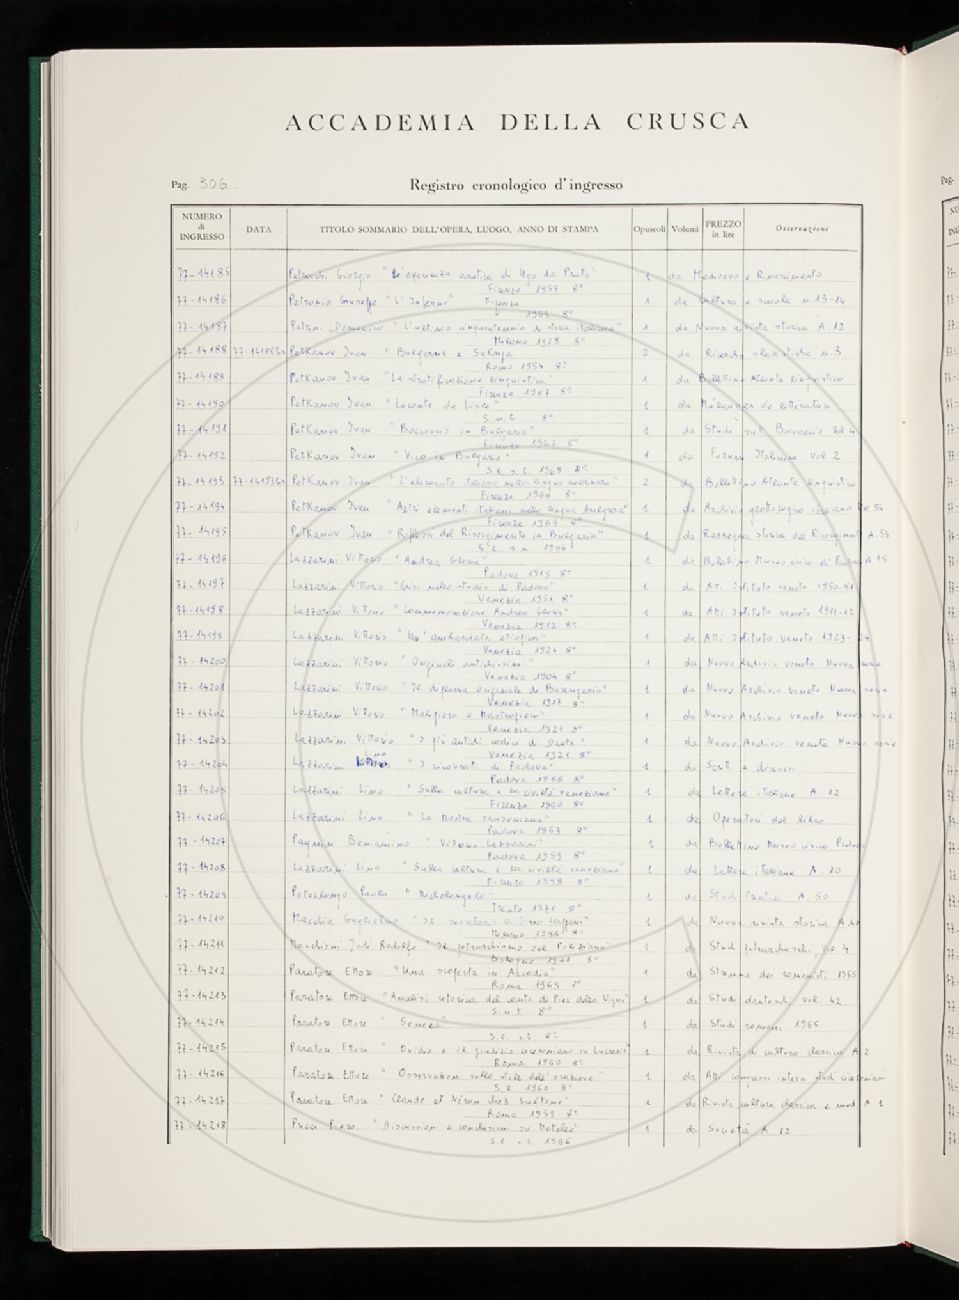 ACCADEMIA DELLA CRUSCA
Pag. 306
Registro cronologico d'ingresso
NUMERO di INGRESSO DATA TITOLO SOMMARIO DELL'OPERA, LUOGO, ANNO DI STAMPA Opuscoli Volumi PREZZO in lire Osservazioni
77-14185 Giorgio " esperienza di Ugo da Prato" 1 da Medioevo e Rinascimento
Firenze 1955 8°
77-14186 Petronio Giuseppe "L'Inferno" Firenze 1 da Cultura e scuola n.13-14
1965 8°
77-14187 Petrini Domenico "L'ultimo di storia italiana" 1 da Nuova rivista storica A. 12
Milano 1928 8°
77-14188 77-14188bis Petkanov Ivan "Bulgarus e 2 da Ricerche slavistiche n.3
Roma 1954 8°
77-14189 Petkanov Ivan "La stratificazione linguistica" 1 da Bollettino Atlante linguistico
Firenze 1967 8°
77-14190 Petkanov Ivan "Leconte de Lisle" 1 da Mélanges de littérature
S.n.t. 8°
77-14191 Petkanov Ivan "Boccaccio in Bulgaria" 1 da Studi sul Boccaccio vol 4
Firenze 1967 8°
77-14192 Petkanov Ivan "Vico in Bulgaria" 1 da Forum Italicum vol 2
S.e. s.t. 1969 8°
77-14193 77-14193bis Petkanov Ivan "L'elemento italiano nella lingua marinara" 2 da Bollettino Atlante linguistico
Firenze 1960 8°
77-14194 Petkanov Ivan "Altri elementi italiani nella lingua bulgara" 1 da Archivio glottologico italiano 54
Firenze 1969 8°
77-14195 Petkanov Ivan "Riflessi del Risorgimento in Bulgaria" 1 da Rassegna storica del Risorgimento A. 53
S.e. s.n. 1966
77-14196 Lazzarini Vittorio "Andrea Gloria" 1 da Bollettino Museo civico di Padova A 15
Padova 1915 8°
77-14197 Lazzarini Vittorio "Crisi nello studio di Padova" 1 da Atti Istituto veneto 1950-51
Venezia 1951 8°
77-14198 Lazzarini Vittorio "Commemorazione Andrea Gloria" 1 da Atti Istituto veneto 1911-12
Venezia 1912 8°
77-14199 Lazzarini Vittorio "Un'ambasciata etiopica" 1 da Atti Istituto veneto 1923-24
Venezia 1924 8°
77-14200 Lazzarini Vittorio "Originali antichissimi" 1 da Nuovo Archivio veneto Nuova serie
Venezia 1904 8°
77-14201 Lazzarini Vittorio "Il diploma originale di Berengario" 1 da Nuovo Archivio veneto Nuova serie
Venezia 1917 8°
77-14202 Lazzarini Vittorio "Malipiero e Mastropiero" 1 da Nuovo Archivio veneto Nuova serie
Venezia 1921 8°
77-14203 Lazzarini Vittorio "I più antichi codici di Dante" 1 da Nuovo Archivio veneto Nuova serie
Venezia 1921 8°
77-14204 Lazzarini "I ricovrati di Padova" 1 da Scritti e discorsi
Padova 1966 8°
77-14205 Lazzarini Lino "Sulla cultura e la civiltà veneziana" 1 da Lettere italiane A 12
Firenze 1960 8°
77-14206 Lazzarini Lino "La Mostra 1 da Operatori del libro
Padova 1963 8°
77-14207 Pagnin Beniamino "Vittorio Lazzarini" 1 da Bollettino Museo civico Padova
Padova 1959 8°
77-14208 Lazzarini Lino "Sulla cultura e la civiltà veneziana" 1 da Lettere italiane A. 10
Firenze 1958 8°
77-14209 Paolo "Michelangelo" 1 da Studi Trentini A. 50
Trento 1971 8°
77-14210 Macchia Guglielmo "Il segretario di Gino Capponi" 1 da Nuova rivista storica A. 40
Milano 1956 8°
77-14211 Macchioni Jodi Rodolfo "Il petrarchismo del Poliziano" 1 da Studi petrarcheschi, vol. 4
Bologna 8°
77-14212 Paratore Ettore "Una scoperta in Arcadia" 1 da Strenna dei romanisti 1965
Roma 1965 8°
77-14213 Paratore Ettore "Analisi retorica del canto di Pier della Vigna" 1 da Studi danteschi vol. 42
S.n.t. 8°
77-14214 Paratore Ettore "Seneca" 1 da Studi romani 1966
S.e. s.t. 8°
77-14215 Paratore Ettore "Ovidio e il giudizio ciceroniano su Lucrezio" 1 da Rivista di cultura classica A 2
Roma 1960 8°
77-14216 Paratore Ettore "Osservazioni sullo stile dell'orazione" 1 da Atti congresso intern studi ciceroniani
S.e. 1960 8°
77-14217 Paratore Ettore "Claude et Néron chez Suétone" 1 da Rivista cultura classica e med A. 1
Roma 1959 8°
77-14218 Pucci Piero "Discussioni e conclusioni su Metello" 1 da Società A. 12
S.e. s.t. 1956